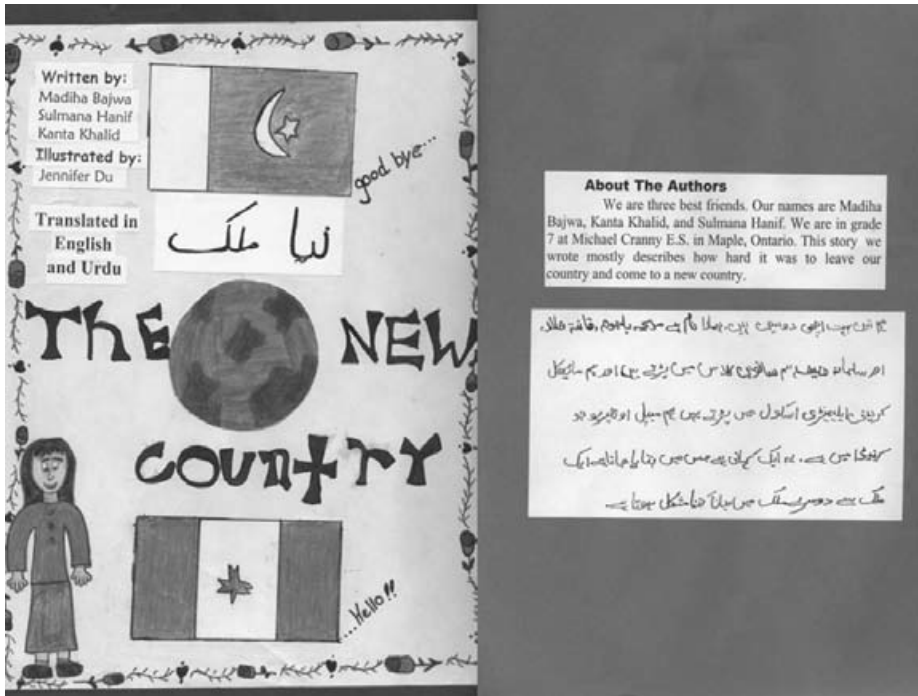 Written by:
Madiha Bajwa
Sulmana Hanif
Kanta Khalid
Illustrated by:
Jennifer Du
Translated in
English
and Urdu
good bye...
نیا ملک
THE NEW
COUNTRY
...Hello!!
About The Authors
We are three best friends. Our names are Madiha
Bajwa, Kanta Khalid, and Sulmana Hanif. We are in grade
7 at Michael Cranny E.S. in Maple, Ontario. This story we
wrote mostly describes how hard it was to leave our
country and come to a new country.
بہت اچھی دوستیں ہیں۔ ہمارا نام ہے
اور سلمانہ ہم ساتویں کلاس میں پڑتے ہیں اور ہم مائیکل
میں پڑتے ہیں ہم میپل جو
میں ہے۔ یہ ایک کہانی ہے جس میں بتایا جاتا ہے ایک
ملک سے دوسرے ملک میں مشکل ہوتا ہے